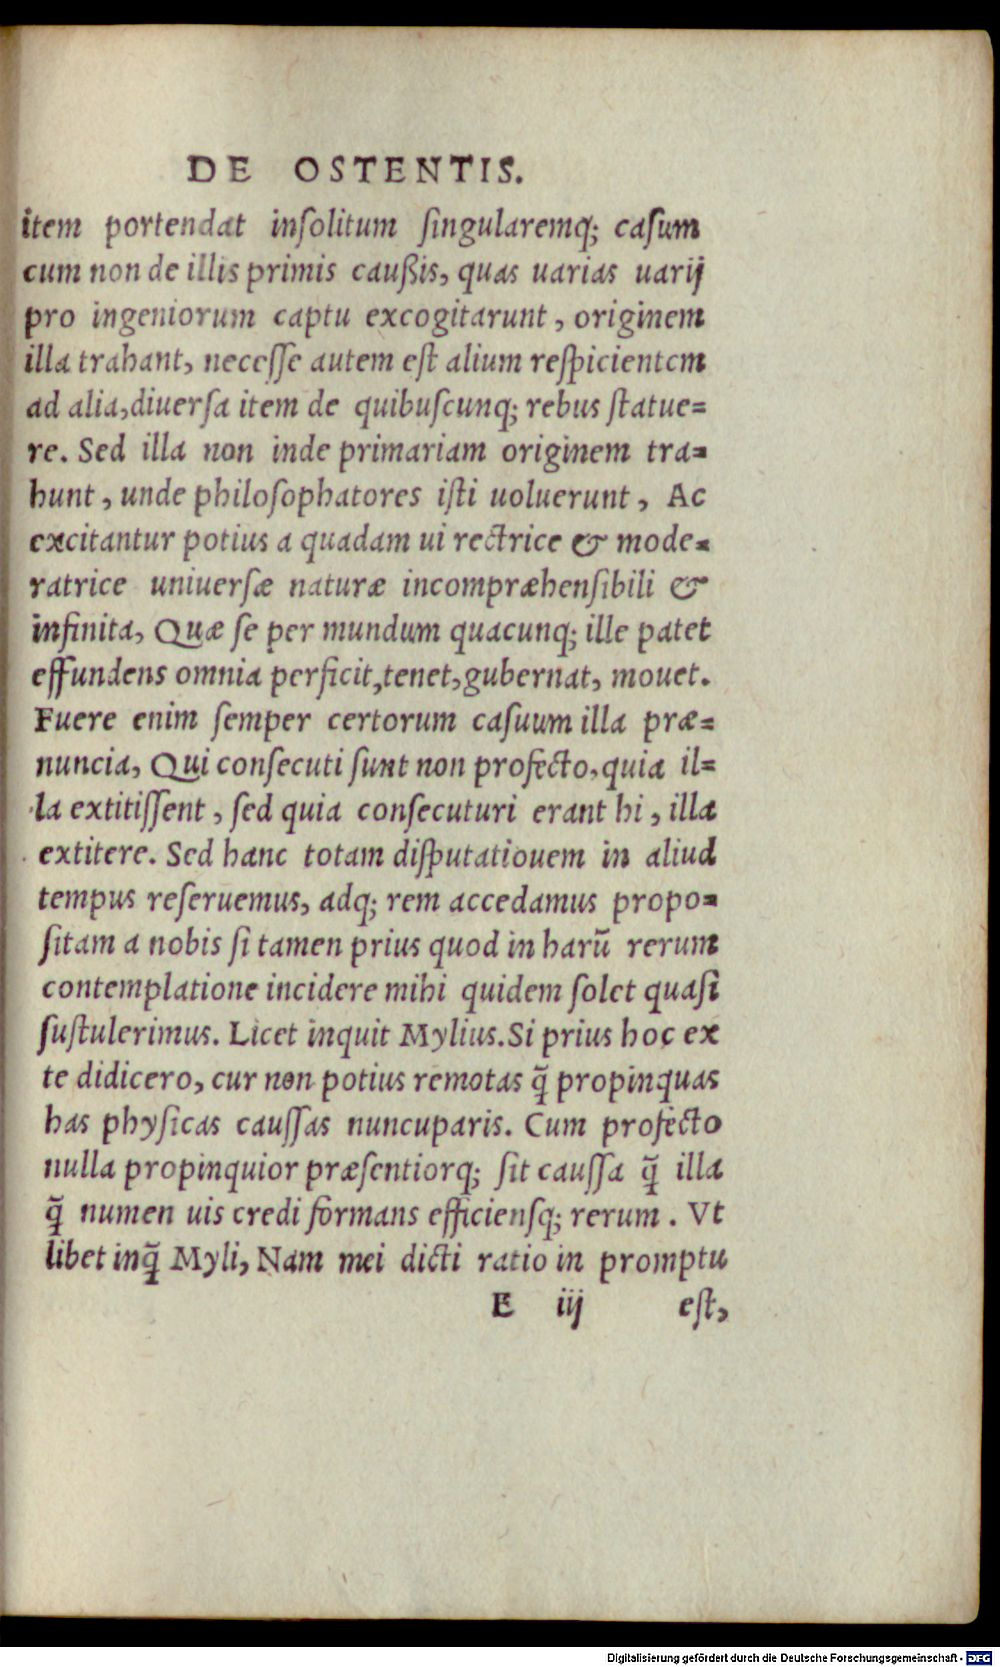 DE OSTENTIS.
item portendat inſolitum ſingularemq́; caſum
cum non de illis primis caußis, quas uarias uarij
pro ingeniorum captu excogitarunt, originem
illa trahant, neceſſe autem eſt alium reſpicientem
ad alia, diuerſa item de quibuſcunq; rebus ſtatue=
re. Sed illa non inde primariam originem tra=
hunt, unde philoſophatores iſti uoluerunt, Ac
excitantur potius a quadam ui rectrice & mode=
ratrice uniuerſæ naturæ incompræhenſibili &
infinita, Quæ ſe per mundum quacunq; ille patet
effundens omnia perficit, tenet, gubernat, mouet.
Fuere enim ſemper certorum caſuum illa præ=
nuncia, Qui conſecuti ſunt non profecto, quia il=
la extitiſſent, ſed quia conſecuturi erant hi, illa
extitere. Sed hanc totam diſputatiouem in aliud
tempus reſeruemus, adq; rem accedamus propo=
ſitam a nobis ſi tamen prius quod in harū rerum
contemplatione incidere mihi quidem ſolet quaſi
ſuſtulerimus. Licet inquit Mylius. Si prius hoc ex
te didicero, cur non potius remotas q̃ propinquas
has phyſicas cauſſas nuncuparis. Cum profecto
nulla propinquior præſentiorq; ſit cauſſa q̃ illa
q̃ numen uis credi formans efficienſq; rerum. Vt
libet inq̃ Myli, Nam mei dicti ratio in promptu
E iij est,
Digitalisierung gefördert durch die Deutsche Forschungsgemeinschaft - DFG